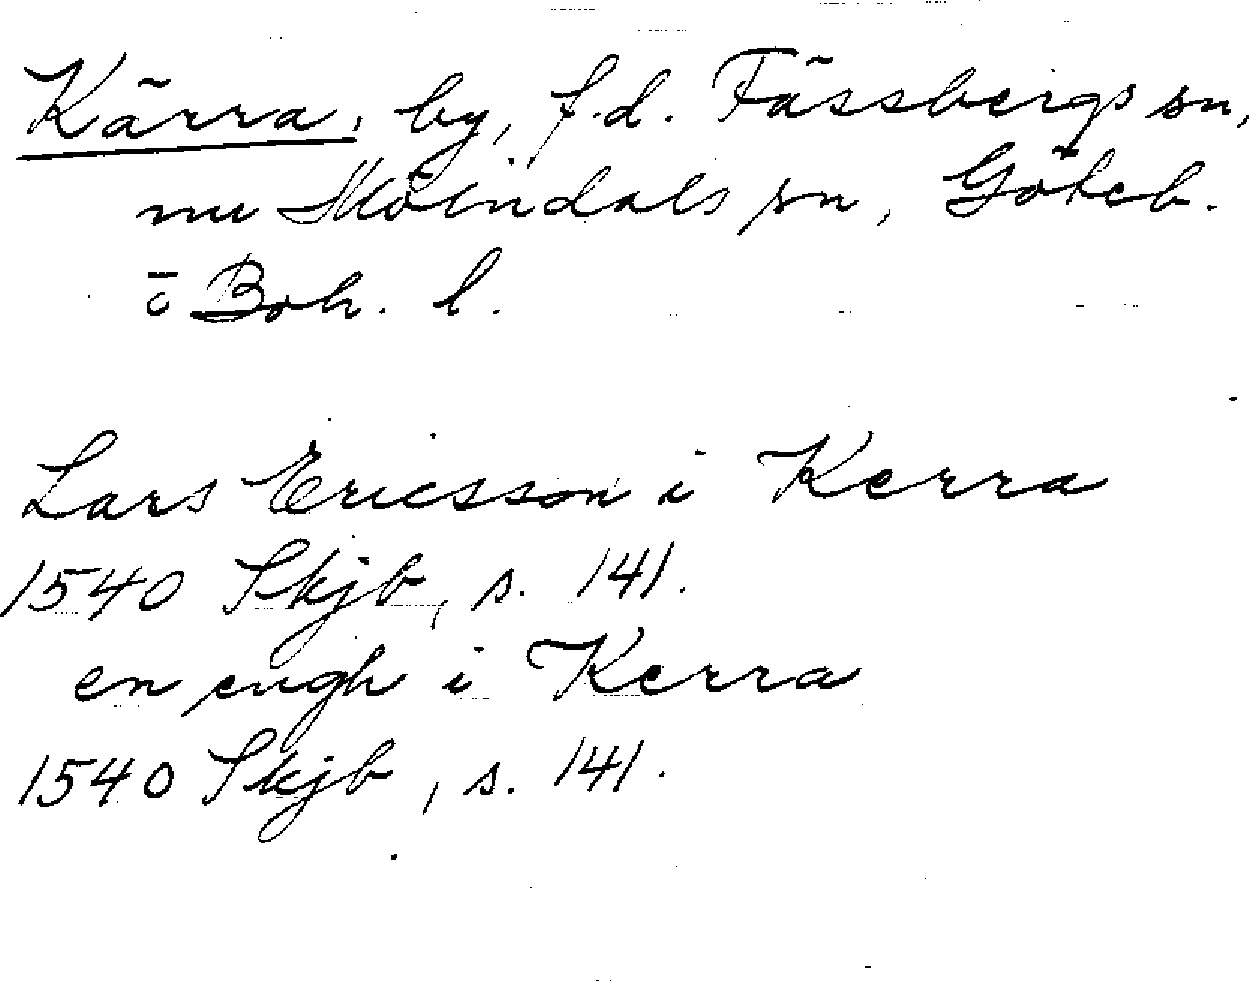 Kärra, by, f.d. Fässbergs sn,
nu Mölndals sn, Göteb.
o Boh. l.
Lars Ericsson i Kerra
1540 Skjb, s. 141.
en engh i Kerra
1540 Skjb, s. 141.